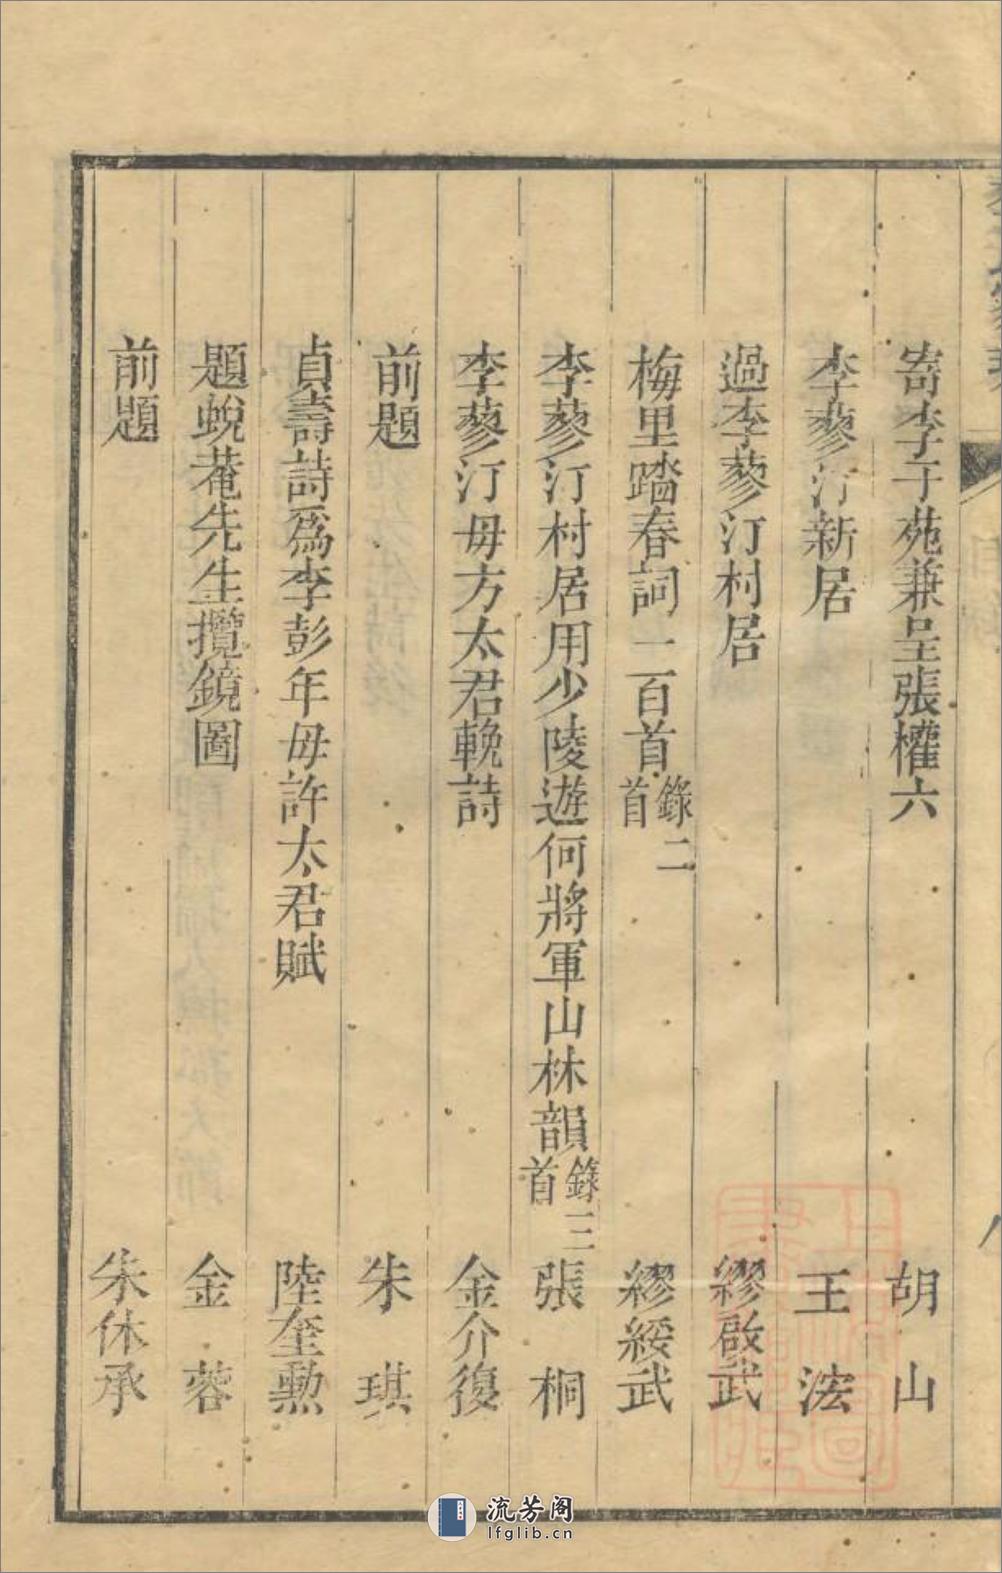 寄李于苑兼呈張權六 胡山
李蓼汀新居 王浤
過李蓼汀村居 繆啟武
梅里踏春詞一百首錄二首 繆綏武
李蓼汀村居用少陵遊何將軍山林韻錄三首 張桐
李蓼汀母方太君輓詩 金介復
前題 朱琪
貞壽詩爲李彭年母許太君賦 陸奎勲
題蛻菴先生攬鏡圖 金蓉
前題 朱休承
流芳阁
lfglib.cn